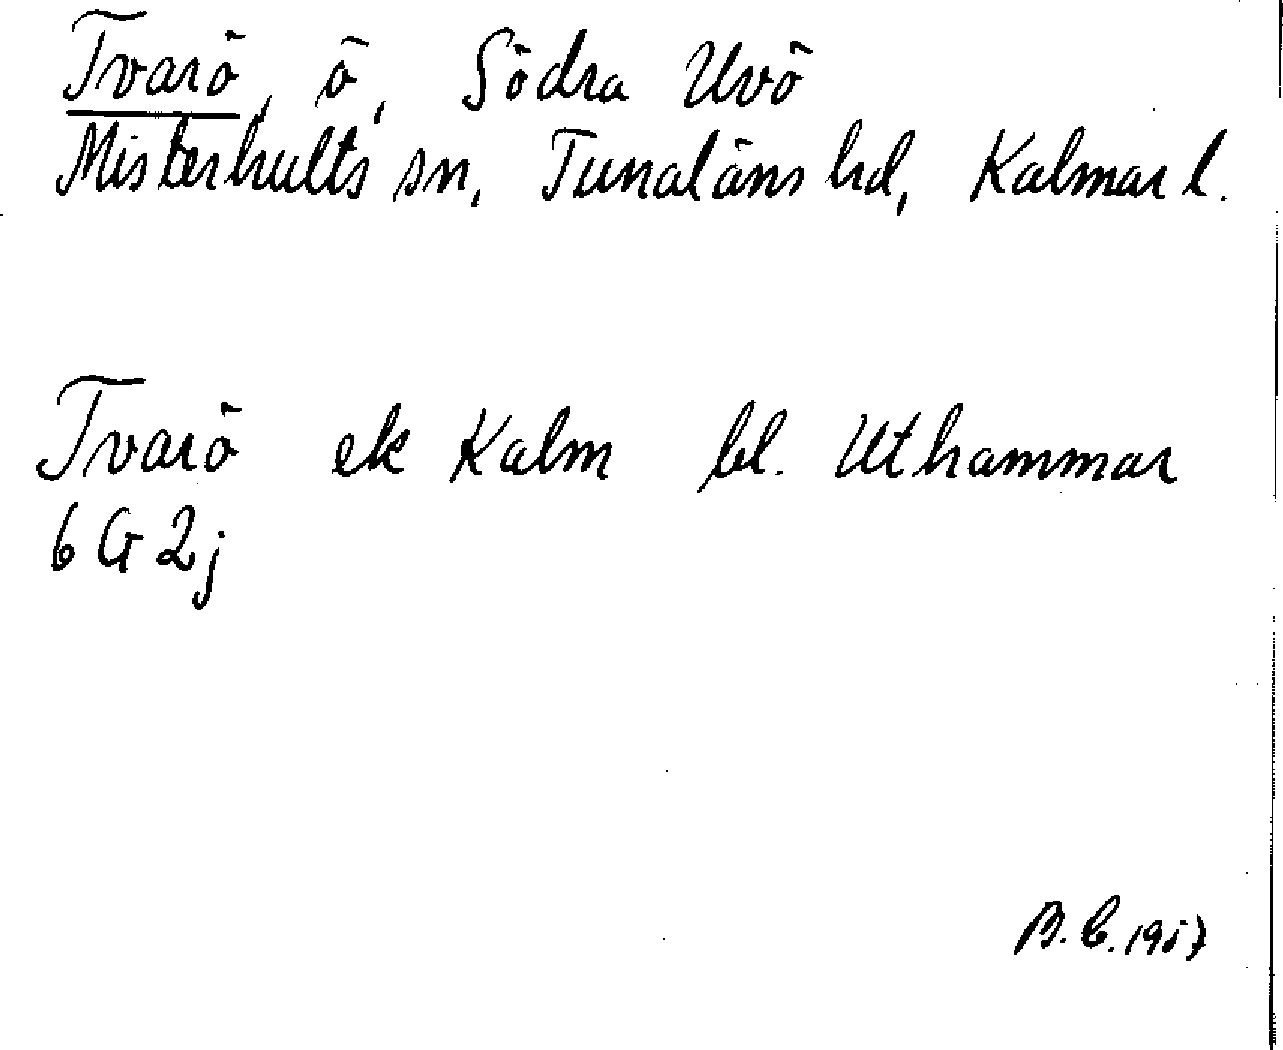 Tvarö, ö, Södra Uvö
Misterhults sn, Tunaläns hd, Kalmar l.
Tvarö ek Kalm bl. Uthammar
6 G 2j
B. C. 1957